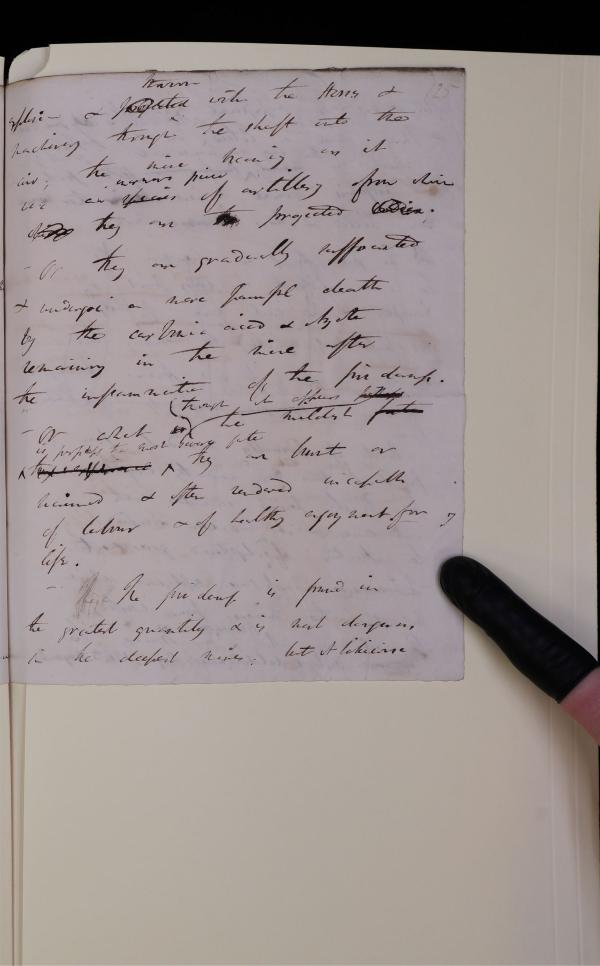 thrown
explosion & projected with the Horses &
machinery through the shaft into the
air; the mine having as it
an enormous piece
were species of artillery from which
they are projected
- Or they are gradually suffocated
& undergo a more painful death
by the carbonic acid & Azote
remaining in the mine after
the inflammation of the fire damp.
though it appears perhaps
- Or what the mildest fate
is perhaps the most severe fate
they are burnt or
maimed & often rendered incapable
of labour & of healthy enjoyment for
life.
- The fire damp is found in
the greatest quantity & is most dangerous
in the deepest mines; but it likewise
125